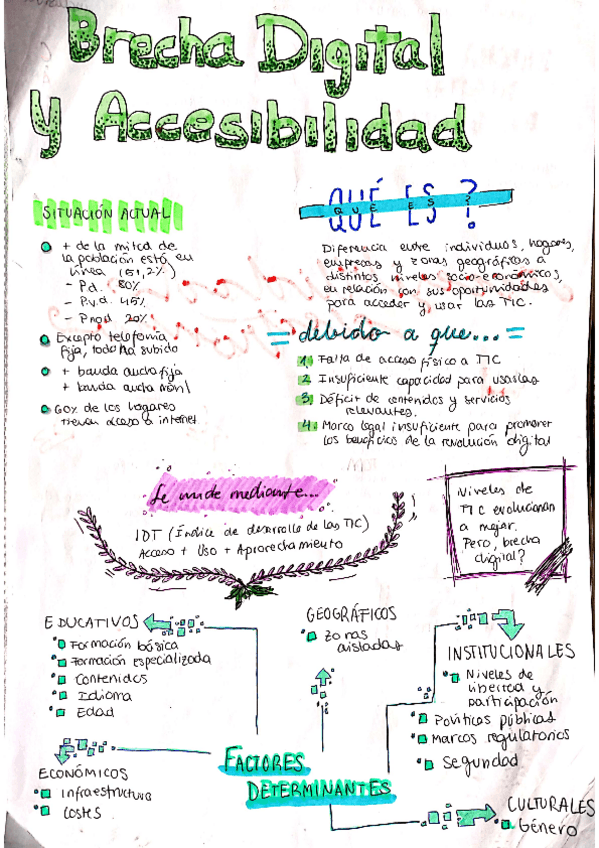 Brecha Digital
y Accesibilidad
SITUACIÓN ACTUAL
+ de la mitad de
la población está en
línea (51,2%)
- P.d. 80%
- P.v.d. 45%
- Pmd 20%
Excepto telefonía
fija, todo ha subido
+ banda ancha fija
+ banda ancha móvil
60% de los hogares
tienen acceso a internet
QUÉ ES ?
QUE ES ?
Diferencia entre individuos, hogares,
empresas y zonas geográficas a
distintos niveles socio-económicos,
en relación con sus oportunidades
para acceder y usar las TIC.
= debido a que... =
1. Falta de acceso físico a TIC
2. Insuficiente capacidad para usarlas
3. Déficit de contenidos y servicios
relevantes.
4. Marco legal insuficiente para promover
los beneficios de la revolución digital
Se mide mediante...
IDT (Índice de desarrollo de las TIC)
Acceso + Uso + Aprovechamiento
Niveles de
TIC evolucionan
a mejor.
Pero, brecha
digital?
EDUCATIVOS
Formación básica
Formación especializada
Contenidos
Idioma
Edad
GEOGRÁFICOS
Zonas
aisladas
INSTITUCIONALES
Niveles de
libertad y
participación
Políticas públicas
Marcos regulatorios
Seguridad
ECONÓMICOS
Infraestructura
Costes
FACTORES
DETERMINANTES
CULTURALES
Género